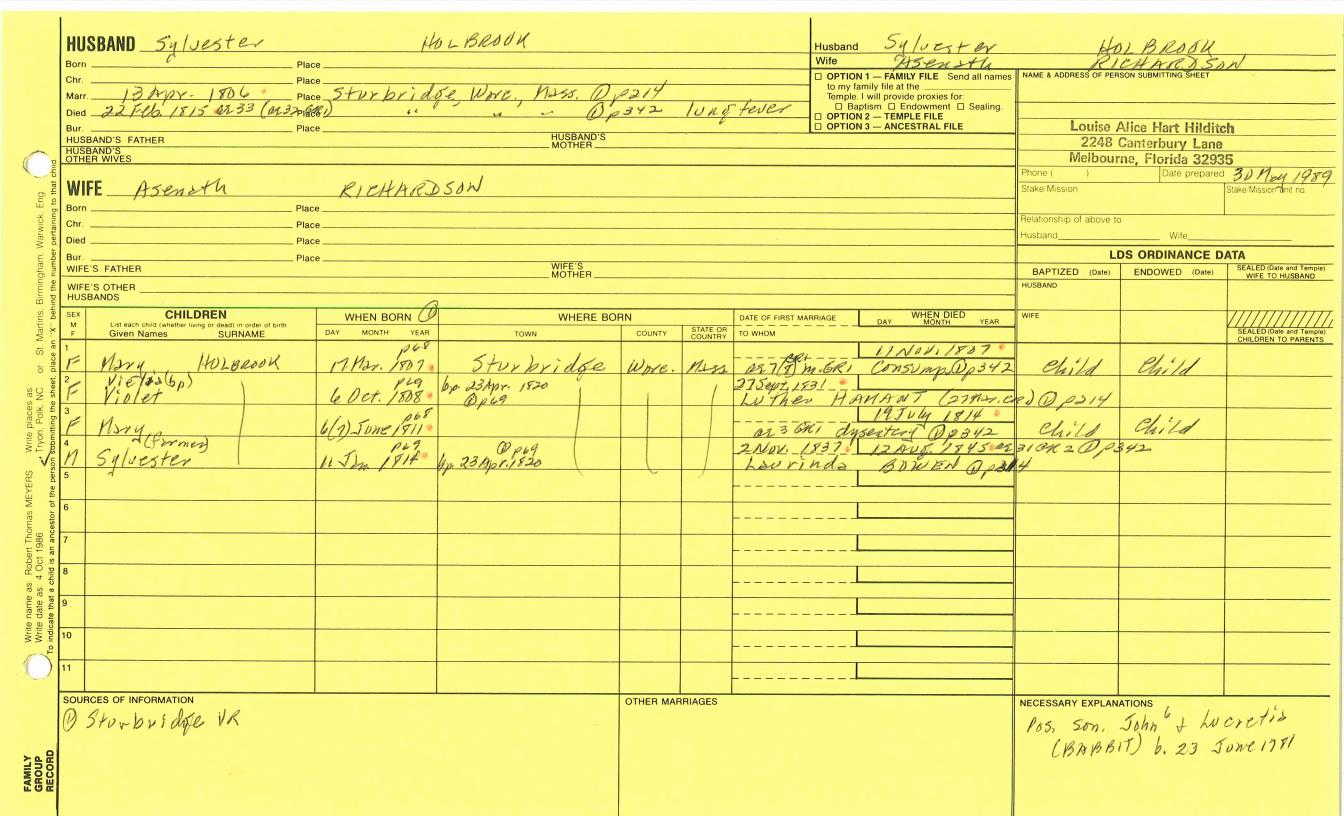 HUSBAND Sylvester HOLBROOK
Born Place
Chr. Place
Marr. 13 Apr. 1806 Place Sturbridge, Worc., Mass. ① p214
Died 22 Feb. 1815 ae 33 (ae 32 GR1) Place " " " ① p342 lung fever
Bur. Place
HUSBAND'S FATHER HUSBAND'S MOTHER
HUSBAND'S OTHER WIVES
WIFE Asenath RICHARDSON
Born Place
Chr. Place
Died Place
Bur. Place
WIFE'S FATHER WIFE'S MOTHER
WIFE'S OTHER HUSBANDS
Husband Sylvester HOLBROOK
Wife Asenath RICHARDSON
☐ OPTION 1 — FAMILY FILE Send all names
to my family file at the
Temple. I will provide proxies for:
☐ Baptism ☐ Endowment ☐ Sealing.
☐ OPTION 2 — TEMPLE FILE
☐ OPTION 3 — ANCESTRAL FILE
NAME & ADDRESS OF PERSON SUBMITTING SHEET
Louise Alice Hart Hilditch
2248 Canterbury Lane
Melbourne, Florida 32935
Phone ( ) Date prepared 30 May 1989
Stake Mission Stake Mission unit no.
Relationship of above to
Husband Wife
LDS ORDINANCE DATA
BAPTIZED (Date) ENDOWED (Date) SEALED (Date and Temple) WIFE TO HUSBAND
HUSBAND
WIFE
SEALED (Date and Temple) CHILDREN TO PARENTS
SEX M F
CHILDREN
List each child (whether living or dead) in order of birth
Given Names SURNAME
WHEN BORN ①
DAY MONTH YEAR
WHERE BORN
TOWN COUNTY STATE OR COUNTRY
DATE OF FIRST MARRIAGE
TO WHOM
WHEN DIED
DAY MONTH YEAR
1 p68 11 Nov. 1807
F Mary HOLBROOK 17 Mar. 1807 Sturbridge Worc. Mass GR1 Consump. ① p342 Child Child
2 (bp) p69 bp. 23 Apr. 1820 27 Sept. 1831
F Violet 6 Oct. 1808 ① p69 Luther HAMANT ① p214
3 p68 19 July 1814
F Mary 6(7) June 1811 ae 3 GR1 dysentery ① p342 Child Child
4 p69 ① p69 2 Nov. 1837 12 Aug. 1845 ae 31 GR2 ① p342
M Sylvester 11 Jan. 1814 bp. 23 Apr. 1820 Laurinda BOWEN ① p214
5
6
7
8
9
10
11
SOURCES OF INFORMATION
① Sturbridge VR
OTHER MARRIAGES
NECESSARY EXPLANATIONS
Pos. son. John⁶ & Lucretia
(BABBIT) b. 23 June 1781
Write name as Robert Thomas MEYERS Write places as ✓ Tryon, Polk, NC or St. Martins, Birmingham, Warwick, Eng
Write date as 4 Oct 1986
To indicate that a child is an ancestor of the person submitting the sheet, place an "X" behind the number pertaining to that child
FAMILY GROUP RECORD